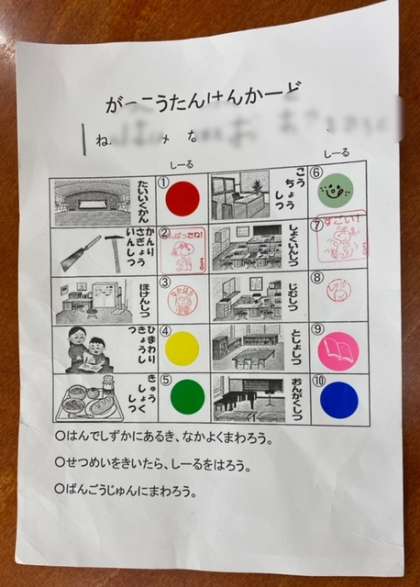 がっこうたんけんかーど
ね
な
しーる
しーる
たいいくかん
①
こうちょうしつ
⑥
かんりさぎょういんしつ
②
しょくいんしつ
⑦
すごい!
ほけんしつ
③
じむしつ
⑧
ひまわりきょうしつ
④
としょしつ
⑨
きゅうしょくしつ
⑤
おんがくしつ
⑩
〇はんでしずかにあるき、なかよくまわろう。
〇せつめいをきいたら、しーるをはろう。
〇ばんごうじゅんにまわろう。